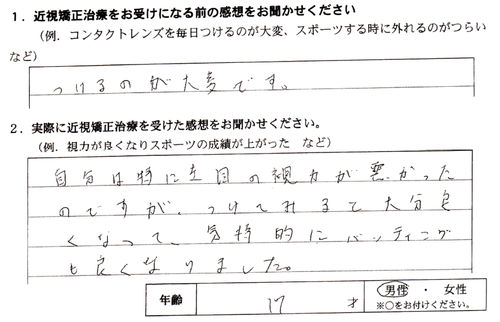 1．近視矯正治療をお受けになる前の感想をお聞かせください
（例．コンタクトレンズを毎日つけるのが大変、スポーツする時に外れるのがつらい
など）
つけるのが大変です。
2．実際に近視矯正治療を受けた感想をお聞かせください。
（例．視力が良くなりスポーツの成績が上がった　など）
自分は特に左目の視力が悪かった
のですが、つけてみると大分良
くなって、気持的にバッティング
も良くなりました。
年齢　17　才　男性 ・ 女性
※○をお付けください。